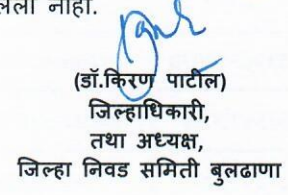 नाही.
(डॉ.किरण पाटील)
जिल्हाधिकारी,
तथा अध्यक्ष,
जिल्हा निवड समिती बुलढाणा